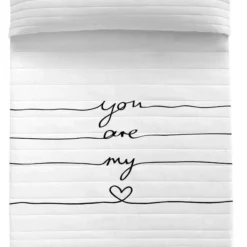 you
are
my
♡